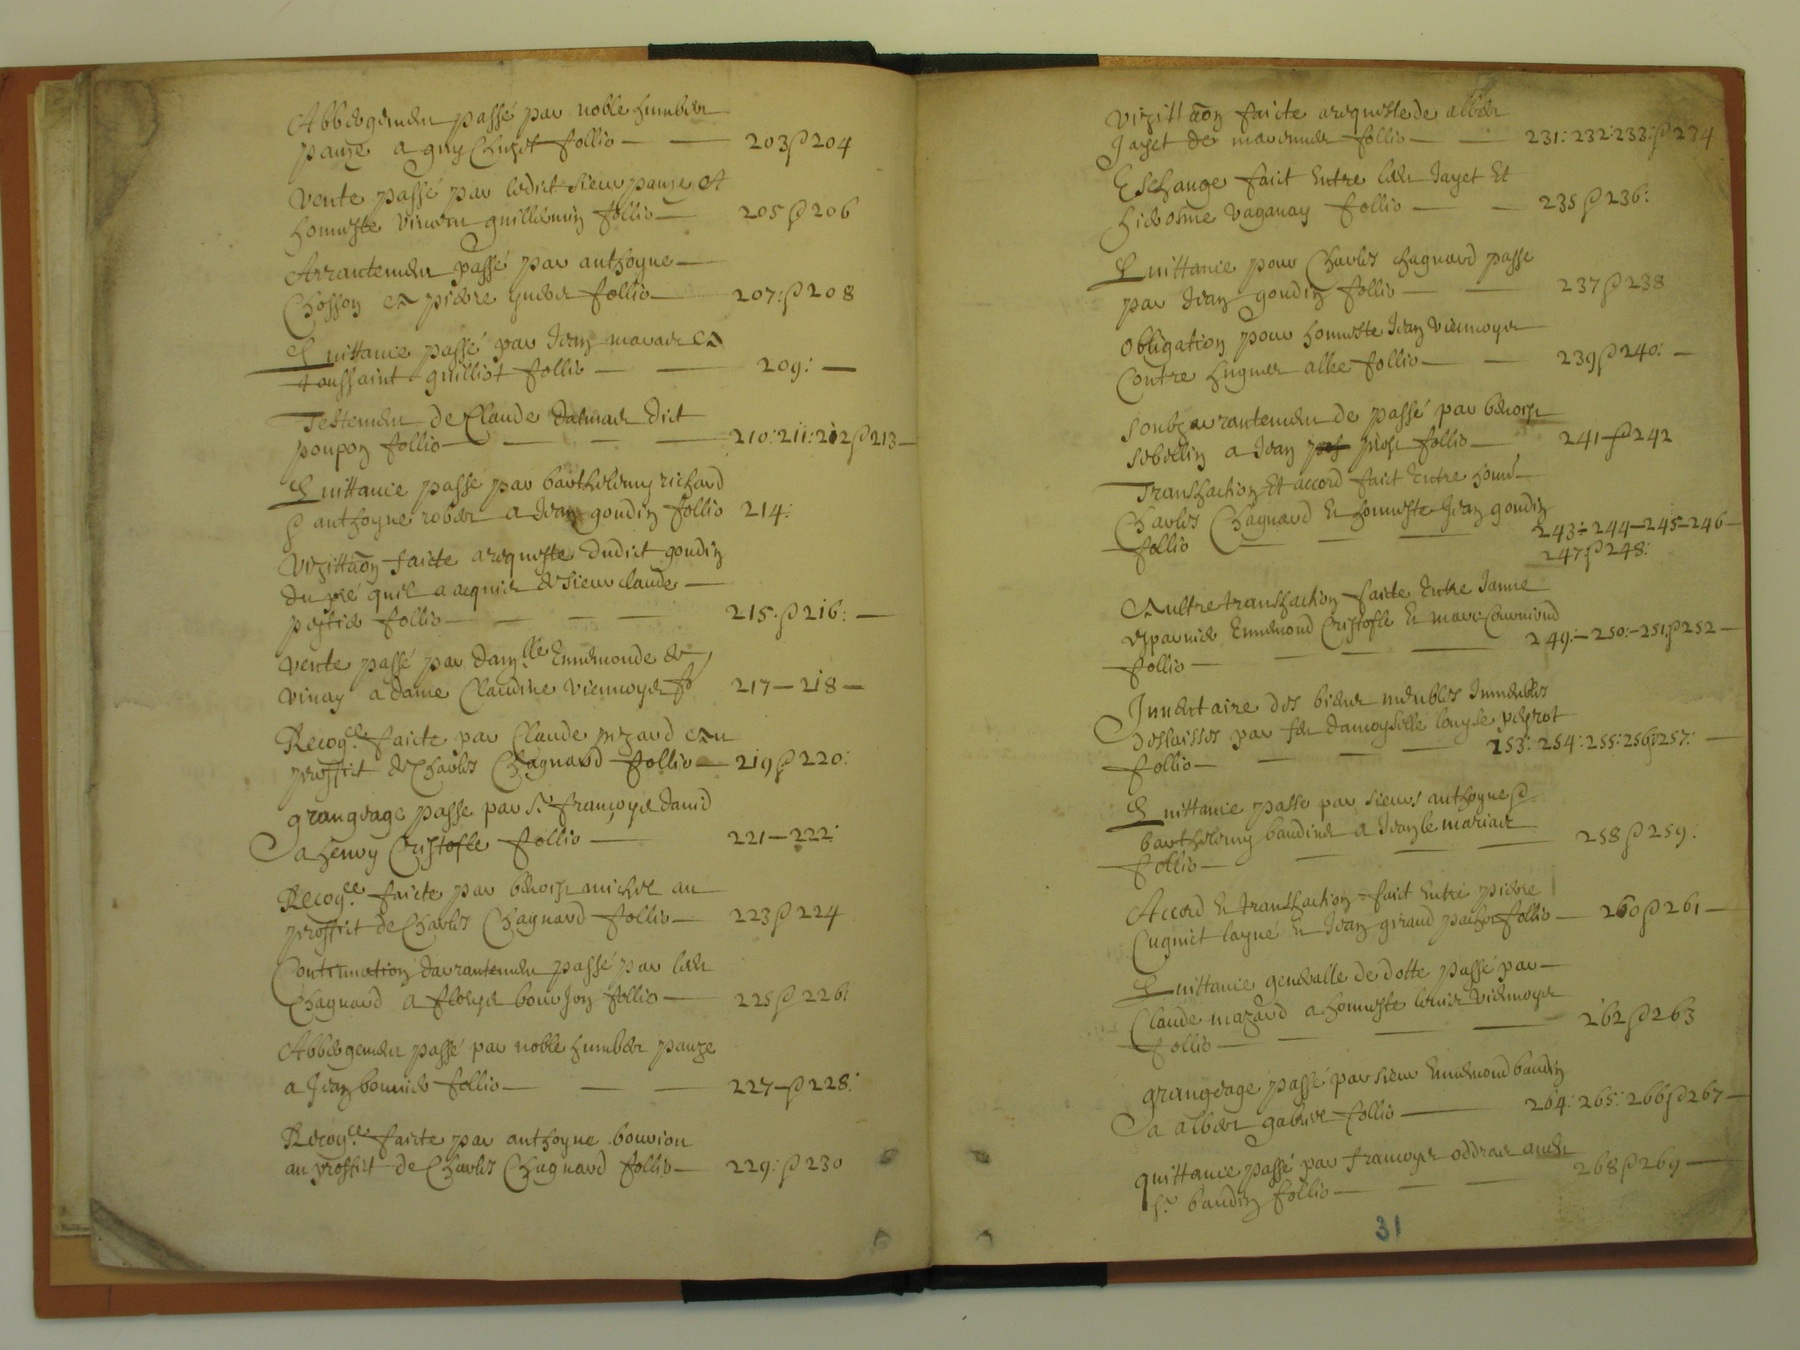 Abbergement passé par noble humbert
panze a guy Chuzet follio — — 203 & 204
vente passé par ledict sieur panze et
honneste vincent guillermin follio — 205 & 206
Arrantement passé par anthoyne —
Chosson et pierre follio — 207: & 208
Quittance passé par Jean et
toussaint guilliot follio — — 209: —
Testement de Claude dalmais dict
poupon follio — — — — 210: 211: 212 & 213 —
Quittance passé par barthelemy richard
& anthoyne robert a Jean goudin follio 214:
vizittaõn faicte a requeste dudict goudin
du pré quil a acquis de sieur claude —
follio — — — — 215: & 216: —
vente passé par damlle Ennemonde de
vinay a dame Claudine viennoys fo 217 — 218 —
Recogce faicte par Claude pizard au
proffict de Charles Chagnard follio — 219 & 220:
grangeage passe par Sr françoys david
a henry Cristofle follio — 221 — 222:
Recogce faicte par benoist michel au
proffict de Charles Chagnard follio — 223 & 224
Continuation darrantement passé par led
Chagnard a fleurys bourjon follio — 225 & 226:
Abbergement passé par noble humbert panze
a Jean bonnier follio — — — 227 — & 228:
Recogce faicte par anthoyne bouvion
au proffict de Charles Chagnard follio — 229: & 230
vizittaõn faicte a requeste de albert
Jayet de follio — — 231: 232: 233: & 234
Eschange faict Entre led Jayet Et
hierosme vaganay follio — — 235 & 236:
Quittance pour Charles chagnard passe
par Jean goudin follio — — 237 & 238
Obligation pour honneste Jean viennoys
Contre hugues follio — — 239 & 240: —
Soubzarrantement de passé par benoist
sebellin a Jean follio — 241 — & 242
Transaction Et accord faict Entre honneste
Charles Chagnard & honneste Jean goudin
follio — — — 243 — 244 — 245 — 246 —
247 & 248:
Aultre transaction faicte Entre Janne
Ennemond Cristofle & marc Courniond
follio — — — — 249: — 250: — 251: & 252 —
Inventaire des biens meubles Immeubles
deslaisses par feu damoyselle louyse peyrot
follio — — — 253: 254: 255: 256: 257: —
Quittance passe par sieurs anthoyne &
barthelemy baudins a Jean le mariad
follio — — — — 258 & 259:
Accord & transaction faict Entre pierre
Cugniet layné & Jean giraud follio — 260 & 261 —
Quittance generalle de dotte passé par —
Claude mazard a honneste viennoys
follio — — — — 262 & 263
grangeage passé par sieur Ennemond baudin
a albert gabure follio — 264: 265: 266 & 267 —
quittance passé par francoys oddrad audit
Sr baudin follio — — — 268 & 269 —
31